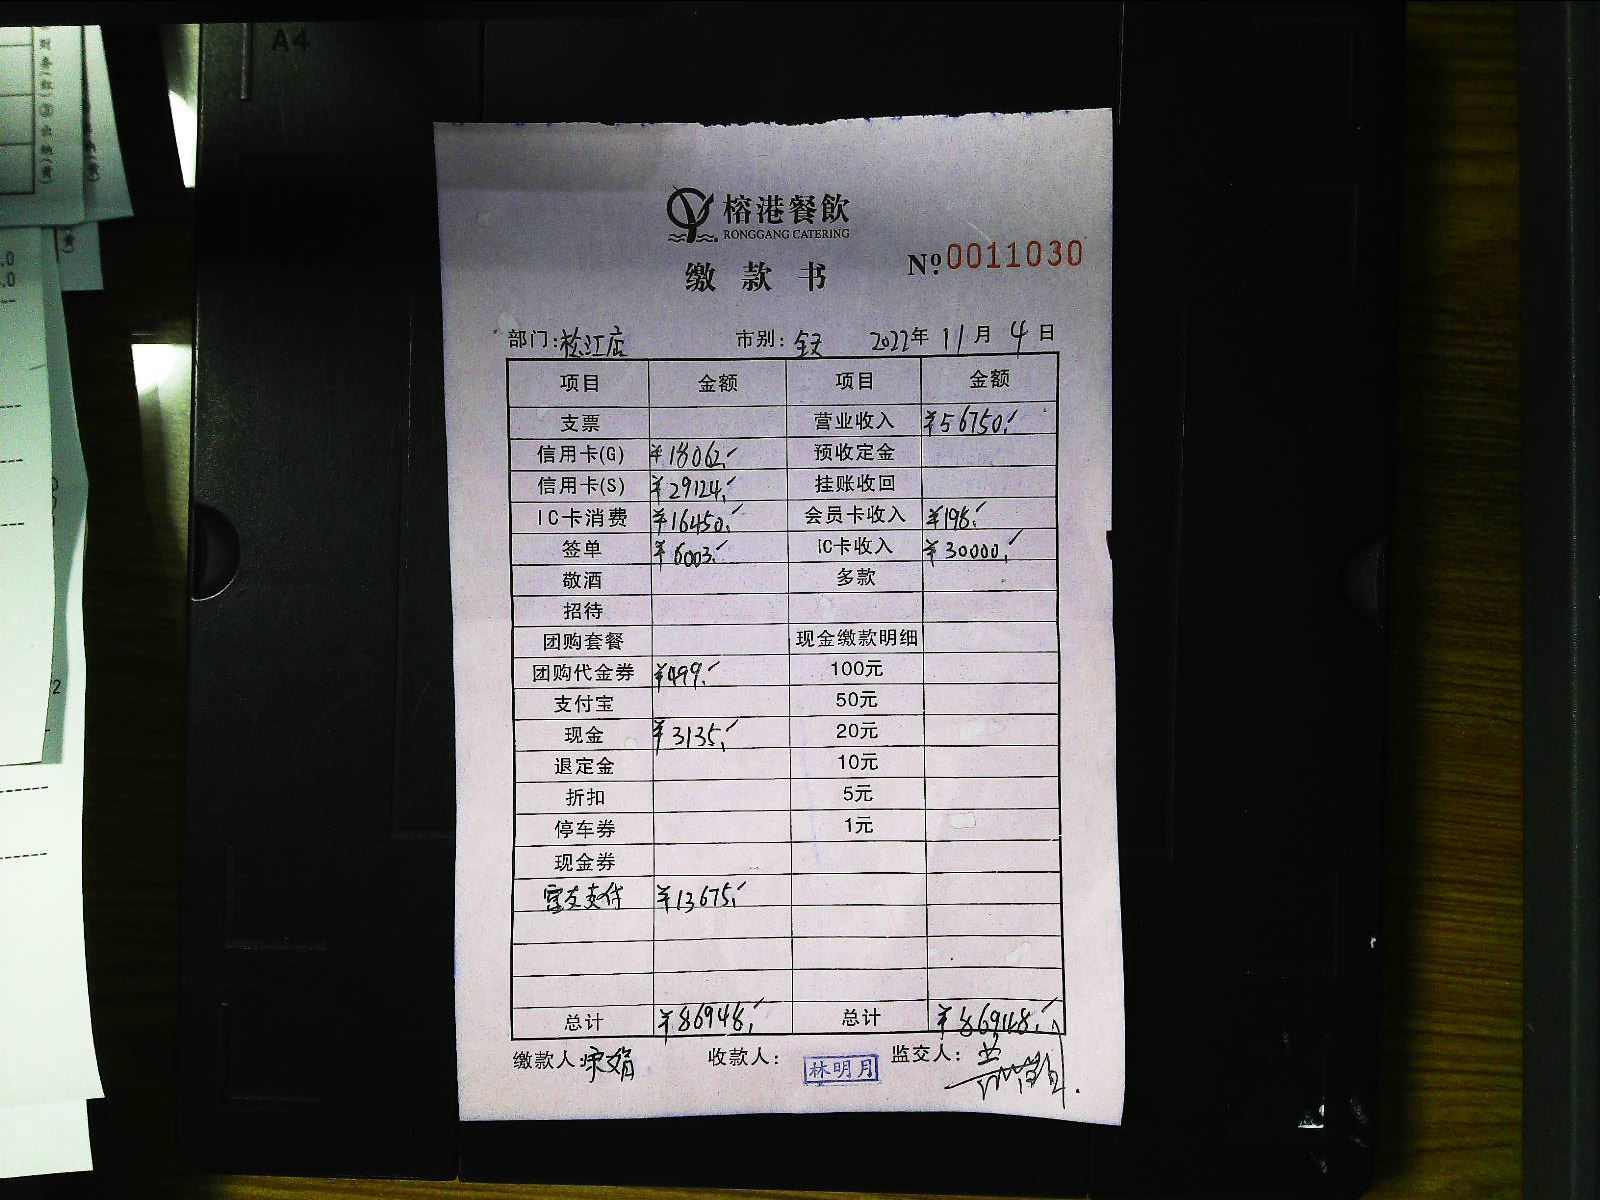 A4
榕港餐飲
RONGGANG CATERING
缴款书
Nº 0011030
部门:松江店 市别:全天 2022年11月4日
项目 金额 项目 金额
支票 营业收入 ¥56750.
信用卡(G) ¥18062. 预收定金
信用卡(S) ¥29124. 挂账收回
IC卡消费 ¥16450. 会员卡收入 ¥198.
签单 ¥6003. IC卡收入 ¥30000.
敬酒 多款
招待
团购套餐 现金缴款明细
团购代金券 ¥499. 100元
支付宝 50元
现金 ¥3135. 20元
退定金 10元
折扣 5元
停车券 1元
现金券
支付 ¥13675.
总计 ¥86948. 总计 ¥86948.
缴款人 收款人: 林明月 监交人: